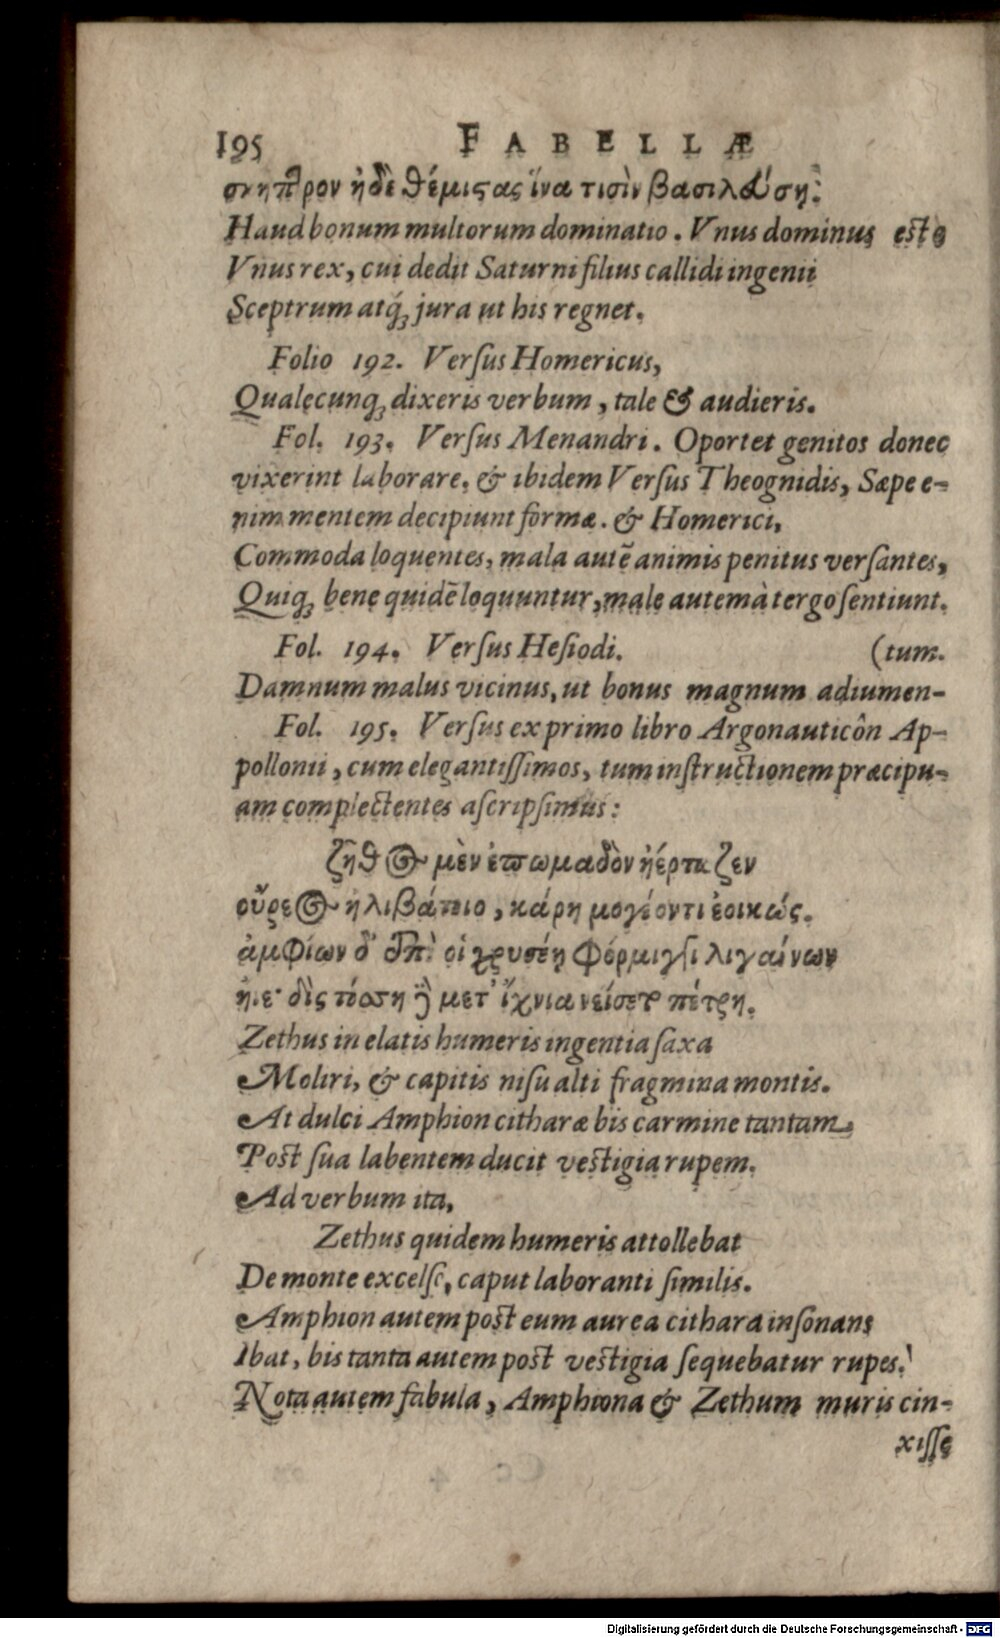 195 FABELLÆ
σκηπτρον ἠδὲ θέμιςας ἵνα τισὶν βασιλεύσῃ:
Haud bonum multorum dominatio. Vnus dominus esto
Vnus rex, cui dedit Saturni filius callidi ingenii
Sceptrum atq́; jura ut his regnet.
Folio 192. Versus Homericus,
Qualecunq; dixeris verbum, tale & audieris.
Fol. 193. Versus Menandri. Oportet genitos donec
vixerint laborare. & ibidem Versus Theognidis, Sæpe e-
nim mentem decipiunt formæ. & Homerici,
Commoda loquentes, mala autẽ animis penitus versantes,
Quiq; bene quidẽ loquuntur, male autem à tergo sentiunt.
Fol. 194. Versus Hesiodi. (tum.
Damnum malus vicinus, ut bonus magnum adiumen-
Fol. 195. Versus ex primo libro Argonauticôn Ap-
pollonii, cum elegantissimos, tum instructionem præcipu-
am complectentes ascripsimus:
ζῆθος μὲν ἐπωμαδὸν ἠέρταζεν
οὔρεος ἠλιβάτοιο, κάρη μογέοντι ἐοικώς.
ἀμφίων δ' ἐπὶ οἱ χρυσέῃ φόρμιγγι λιγαίνων
ἤιε· δὶς τόσση δὲ μετ' ἴχνια νείσετο πέτρη.
Zethus in elatis humeris ingentia saxa
Moliri, & capitis nisu alti fragmina montis.
At dulci Amphion citharæ bis carmine tantam
Post sua labentem ducit vestigia rupem.
Ad verbum ita,
Zethus quidem humeris attollebat
De monte excelso, caput laboranti similis.
Amphion autem post eum aurea cithara insonans
Ibat, bis tanta autem post vestigia sequebatur rupes.
Nota autem fabula, Amphiona & Zethum muris cin-
xisse
Digitalisierung gefördert durch die Deutsche Forschungsgemeinschaft - DFG